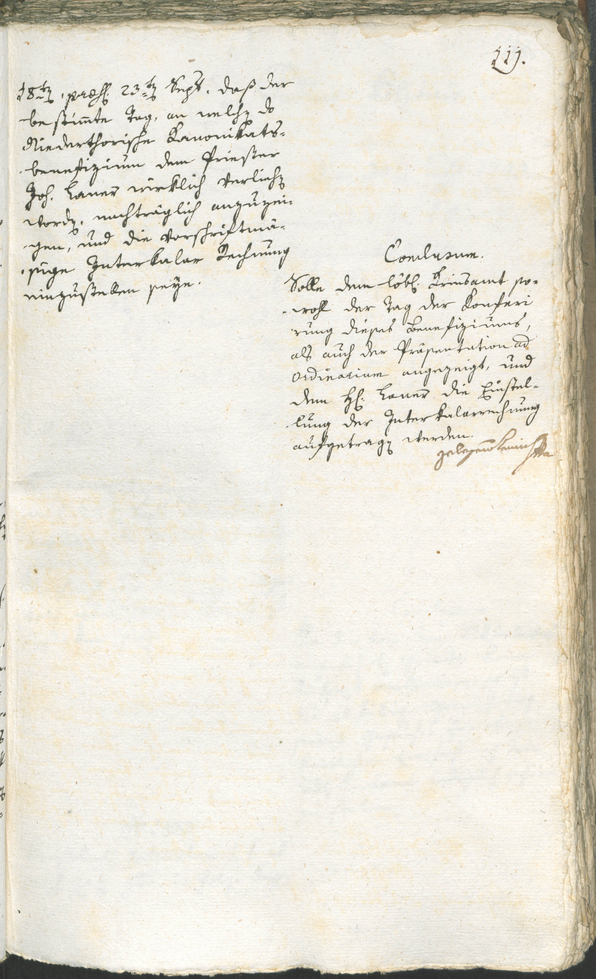 111.
18ten, praes. 23ten Sept. daß der
bestimte Tag, an welchen das
Niederthorische Kanonikats-
benefizium dem Priester
Joh. Laner wirklich verliehen
worden, nachträglich anzuzei-
gen, und die vorschriftmä-
ßige Interkalar Rechnung
einzustellen seye.
Conclusum.
Solle dem löbl. Kreisamt so-
wohl der Tag der Konferi
rung dieses Benefiziums,
als auch der Präsentation ad
Ordinarium angezeigt, und
dem H. Laner die Einstel-
lung der Interkalarrechnung
aufgetragen werden.